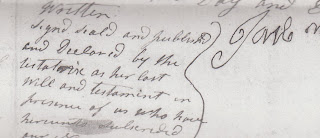 Written
Signd seald and published
and Declared by the
testatrix as her last
will and testament in
presence of us who have
hereunto subscribed